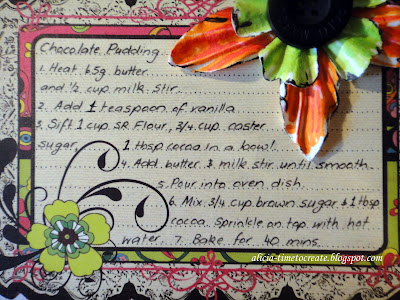 Chocolate Pudding
1. Heat 65g butter
and ½ cup milk. stir.
2. Add 1 teaspoon of vanilla
3. Sift 1 cup SR Flour, 3/4 cup caster
sugar, 1 tbsp cocoa in a bowl.
4. Add butter & milk stir until smooth
5. Pour into oven dish.
6. Mix 3/4 cup brown sugar & 1 tbsp
cocoa. Sprinkle on top with hot
water. 7. Bake for 40 mins.
alicia-timetocreate.blogspot.com